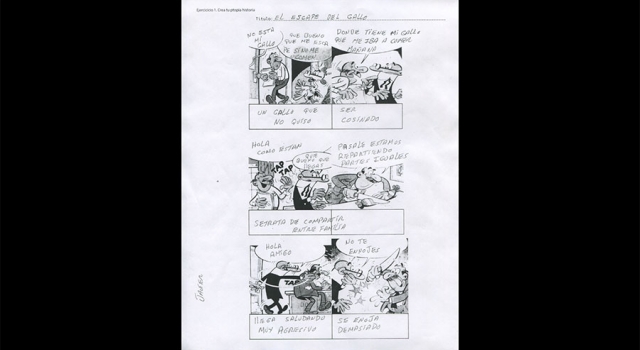 Ejercicio 1. Crea tu propia historia
Título: EL ESCAPE DEL GALLO
NO ESTA
MI
GALLO
QUE BUENO
QUE ME ESCA
PE SINO ME
COMEN
DONDE TIENE MI GALLO
QUE ME IBA A COMER
MAÑANA
UN GALLO QUE
NO QUISO
SER
COSINADO
HOLA
COMO ESTAN
TAP
TAP
QUE
BUENO QUE
LLEGAS
PASALE ESTAMOS
REPARTIENDO
PARTES IGUALES
SETRATA DE COMPARTIR
ENTRE FAMILIA
HOLA
AMIGO
TAP
NO TE
ENOJES
LLEGA SALUDANDO
MUY AGRECIVO
SE ENOJA
DEMASIADO